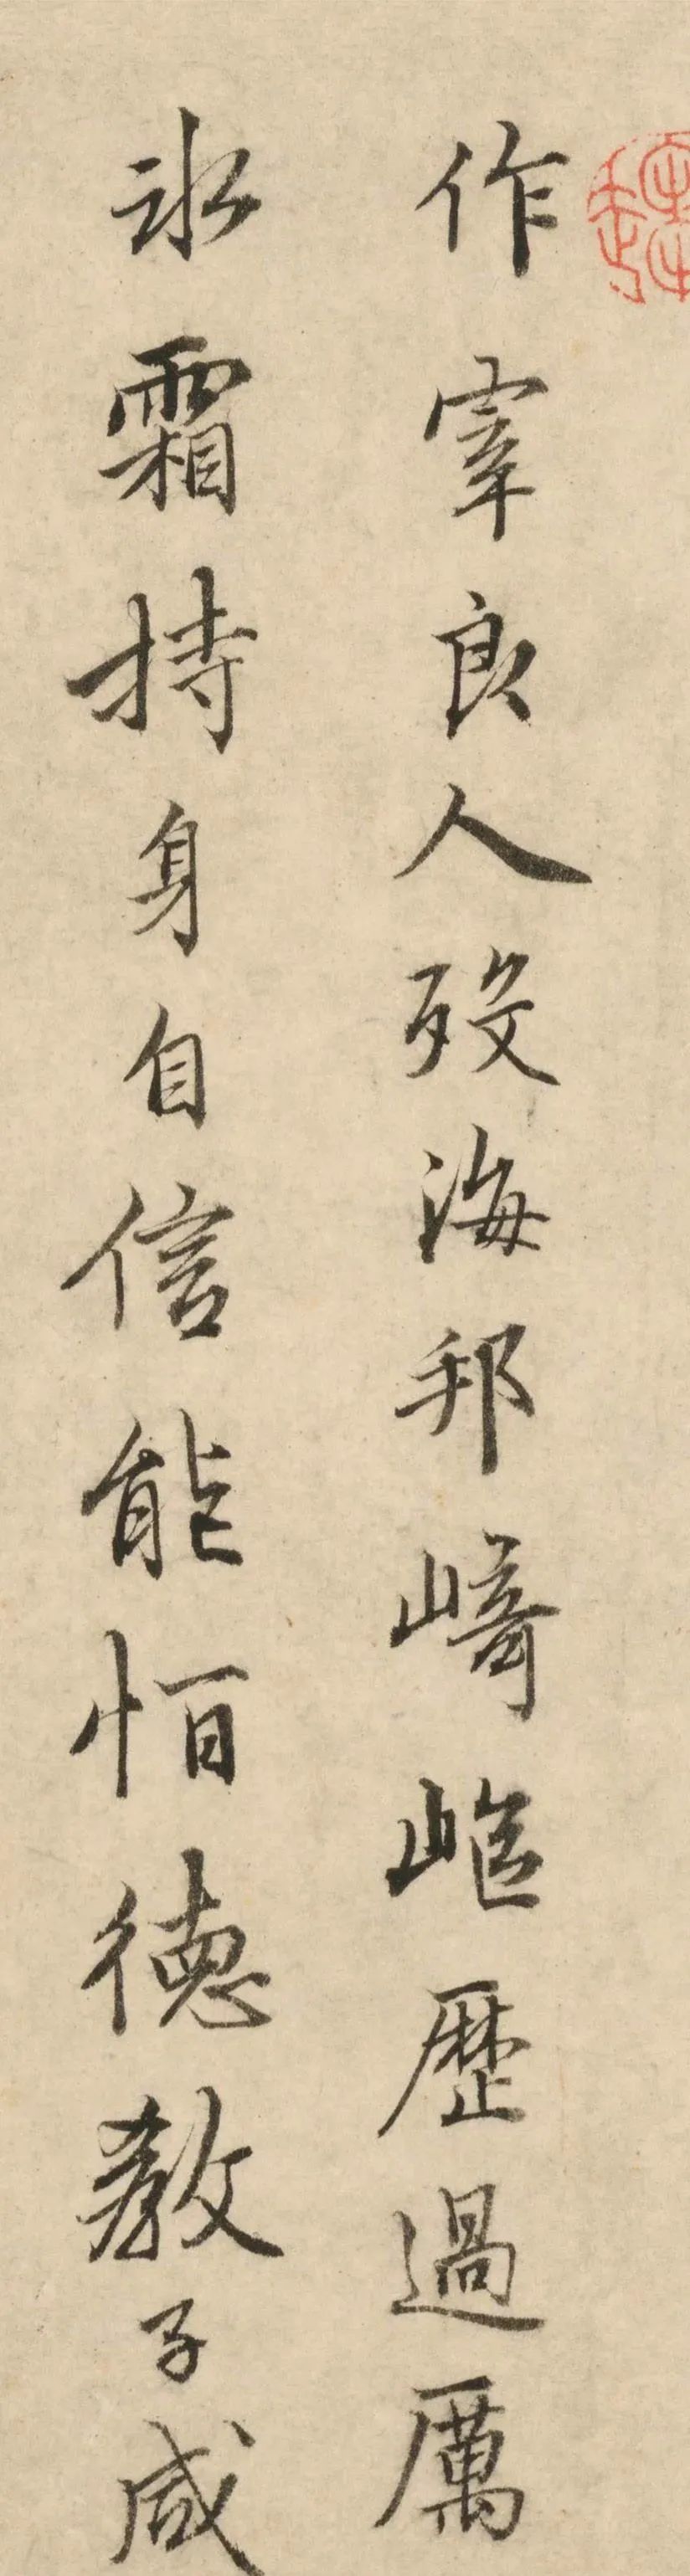 作宰良人歿海邦崎嶇歷過厲
冰霜持身自信能恒德教子咸